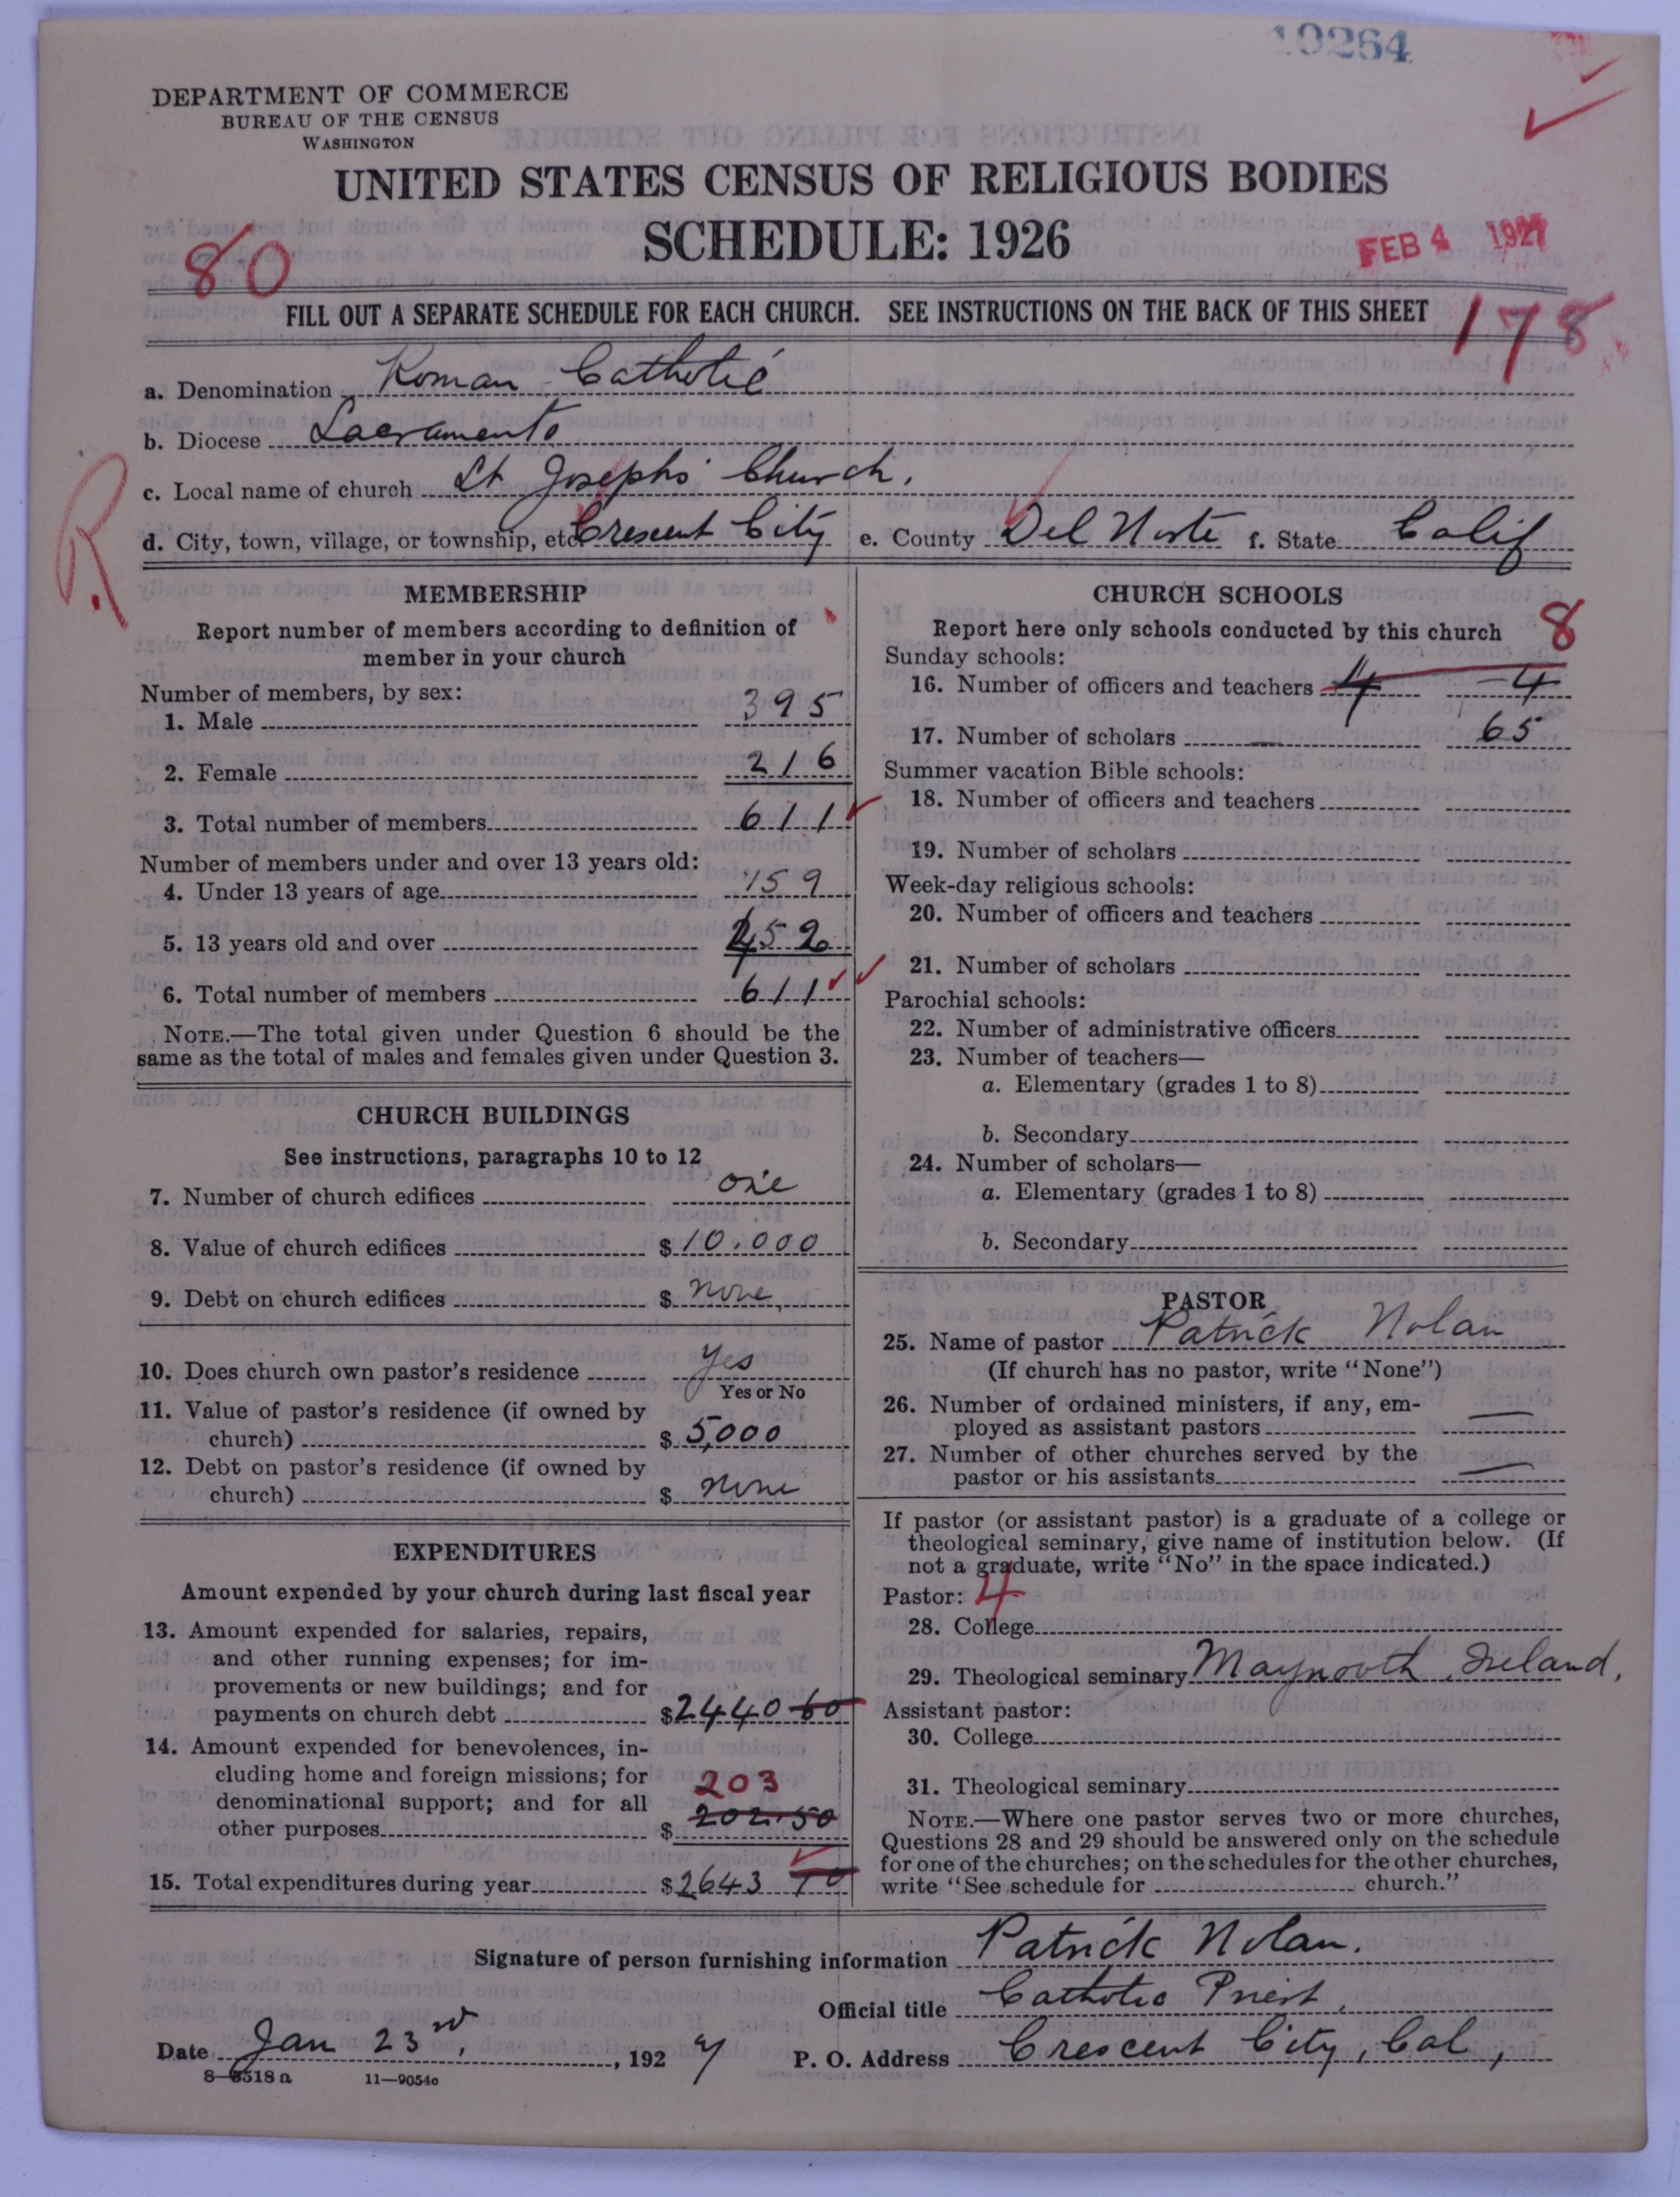 10264
DEPARTMENT OF COMMERCE
BUREAU OF THE CENSUS
WASHINGTON
UNITED STATES CENSUS OF RELIGIOUS BODIES
SCHEDULE: 1926
80
FEB 4 1927
FILL OUT A SEPARATE SCHEDULE FOR EACH CHURCH. SEE INSTRUCTIONS ON THE BACK OF THIS SHEET
178
a. Denomination Roman Catholic
b. Diocese Sacramento
c. Local name of church St Josephs Church.
R.
d. City, town, village, or township, etc. Crescent City e. County Del Norte f. State Calif
MEMBERSHIP
Report number of members according to definition of
member in your church
Number of members, by sex:
1. Male 395
2. Female 216
3. Total number of members 611
Number of members under and over 13 years old:
4. Under 13 years of age 159
5. 13 years old and over 452
6. Total number of members 611
NOTE.—The total given under Question 6 should be the
same as the total of males and females given under Question 3.
CHURCH BUILDINGS
See instructions, paragraphs 10 to 12
7. Number of church edifices one
8. Value of church edifices $ 10,000
9. Debt on church edifices $ none,
10. Does church own pastor's residence yes
Yes or No
11. Value of pastor's residence (if owned by
church) $ 5,000
12. Debt on pastor's residence (if owned by
church) $ none
EXPENDITURES
Amount expended by your church during last fiscal year
13. Amount expended for salaries, repairs,
and other running expenses; for im-
provements or new buildings; and for
payments on church debt $2440 60
14. Amount expended for benevolences, in-
cluding home and foreign missions; for
203
denominational support; and for all
other purposes $ 202.50
15. Total expenditures during year $2643 10
CHURCH SCHOOLS
Report here only schools conducted by this church
8
Sunday schools:
16. Number of officers and teachers 4 – 4
17. Number of scholars — 65
Summer vacation Bible schools:
18. Number of officers and teachers
19. Number of scholars
Week-day religious schools:
20. Number of officers and teachers
21. Number of scholars
Parochial schools:
22. Number of administrative officers
23. Number of teachers—
a. Elementary (grades 1 to 8)
b. Secondary
24. Number of scholars—
a. Elementary (grades 1 to 8)
b. Secondary
PASTOR
25. Name of pastor Patrick Nolan
(If church has no pastor, write "None")
26. Number of ordained ministers, if any, em-
ployed as assistant pastors —
27. Number of other churches served by the
pastor or his assistants —
If pastor (or assistant pastor) is a graduate of a college or
theological seminary, give name of institution below. (If
not a graduate, write "No" in the space indicated.)
Pastor: 4
28. College
29. Theological seminary Maynooth, Ireland,
Assistant pastor:
30. College
31. Theological seminary
NOTE.—Where one pastor serves two or more churches,
Questions 28 and 29 should be answered only on the schedule
for one of the churches; on the schedules for the other churches,
write "See schedule for church."
Signature of person furnishing information Patrick Nolan.
Official title Catholic Priest,
Date Jan 23rd, , 192 7 P. O. Address Crescent City, Cal,
8—6518a 11—9054c